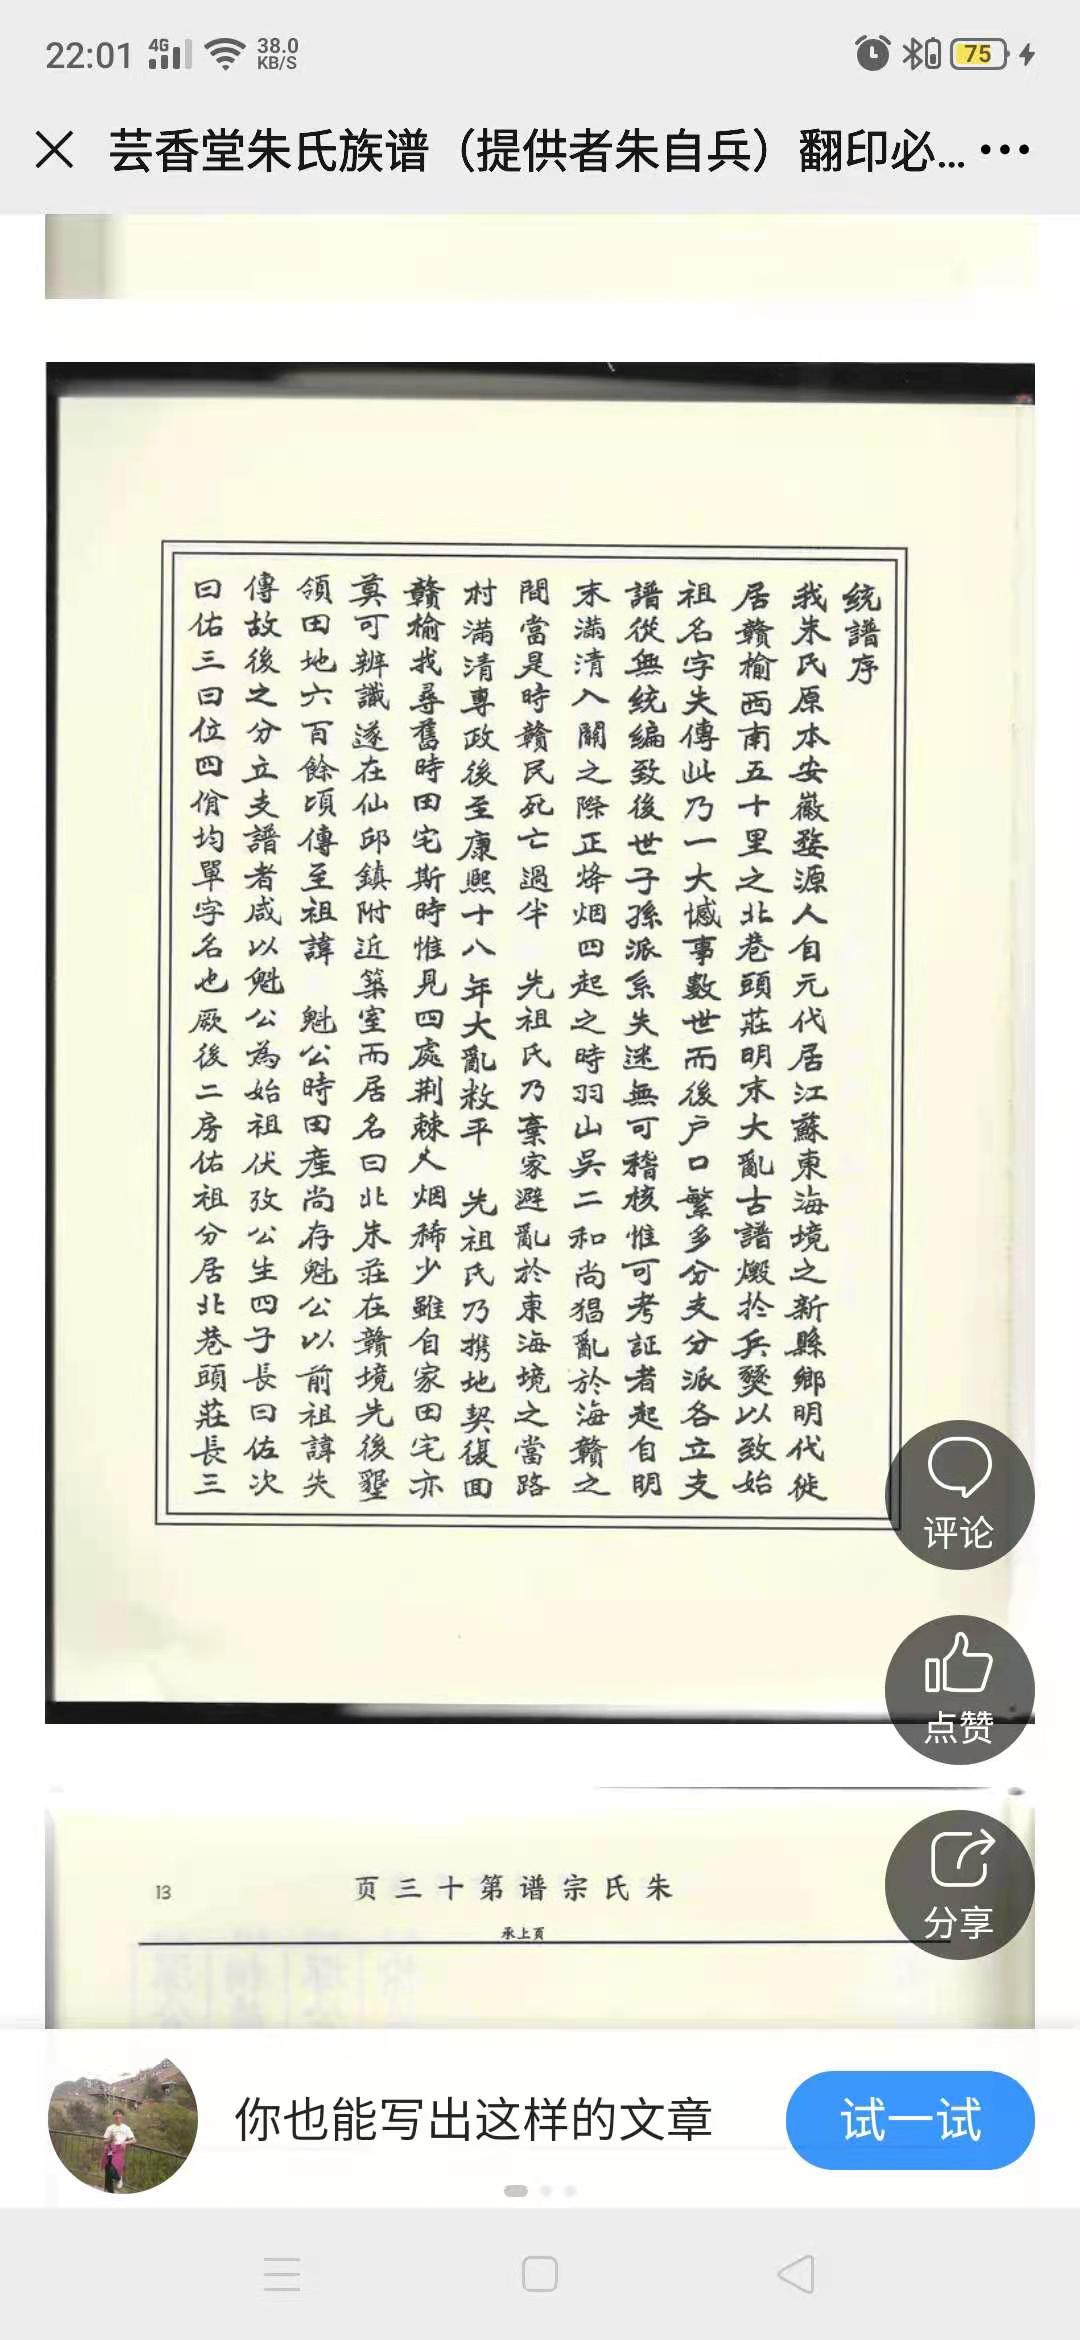 22:01 4G 38.0 KB/S 75
芸香堂朱氏族谱（提供者朱自兵）翻印必...
统譜序
我朱氏原本安徽婺源人自元代居江蘇東海境之新縣鄉明代徙
居贛榆西南五十里之北巷頭莊明末大亂古譜燬於兵燹以致始
祖名字失傳此乃一大憾事數世而後户口繁多分支分派各立支
譜從無統编致後世子孫派系失迷無可稽核惟可考証者起自明
末滿清入關之際正烽烟四起之時羽山吳二和尚猖亂於海贛之
間當是時贛民死亡過半 先祖氏乃棄家避亂於東海境之當路
村滿清專政後至康熙十八年大亂敉平 先祖氏乃携地契復回
贛榆找尋舊時田宅斯時惟見四處荆棘人烟稀少雖自家田宅亦
莫可辨識遂在仙邱鎮附近築室而居名曰北朱莊在贛境先後墾
領田地六百餘頃傳至祖諱 魁公時田產尚存魁公以前祖諱失
傳故後之分立支譜者咸以魁公為始祖伏攷公生四子長曰佐次
曰佑三曰位四佾均單字名也厥後二房佑祖分居北巷頭莊長三
评论
点赞
13
页三十第谱宗氏朱
承上頁
分享
你也能写出这样的文章
试一试